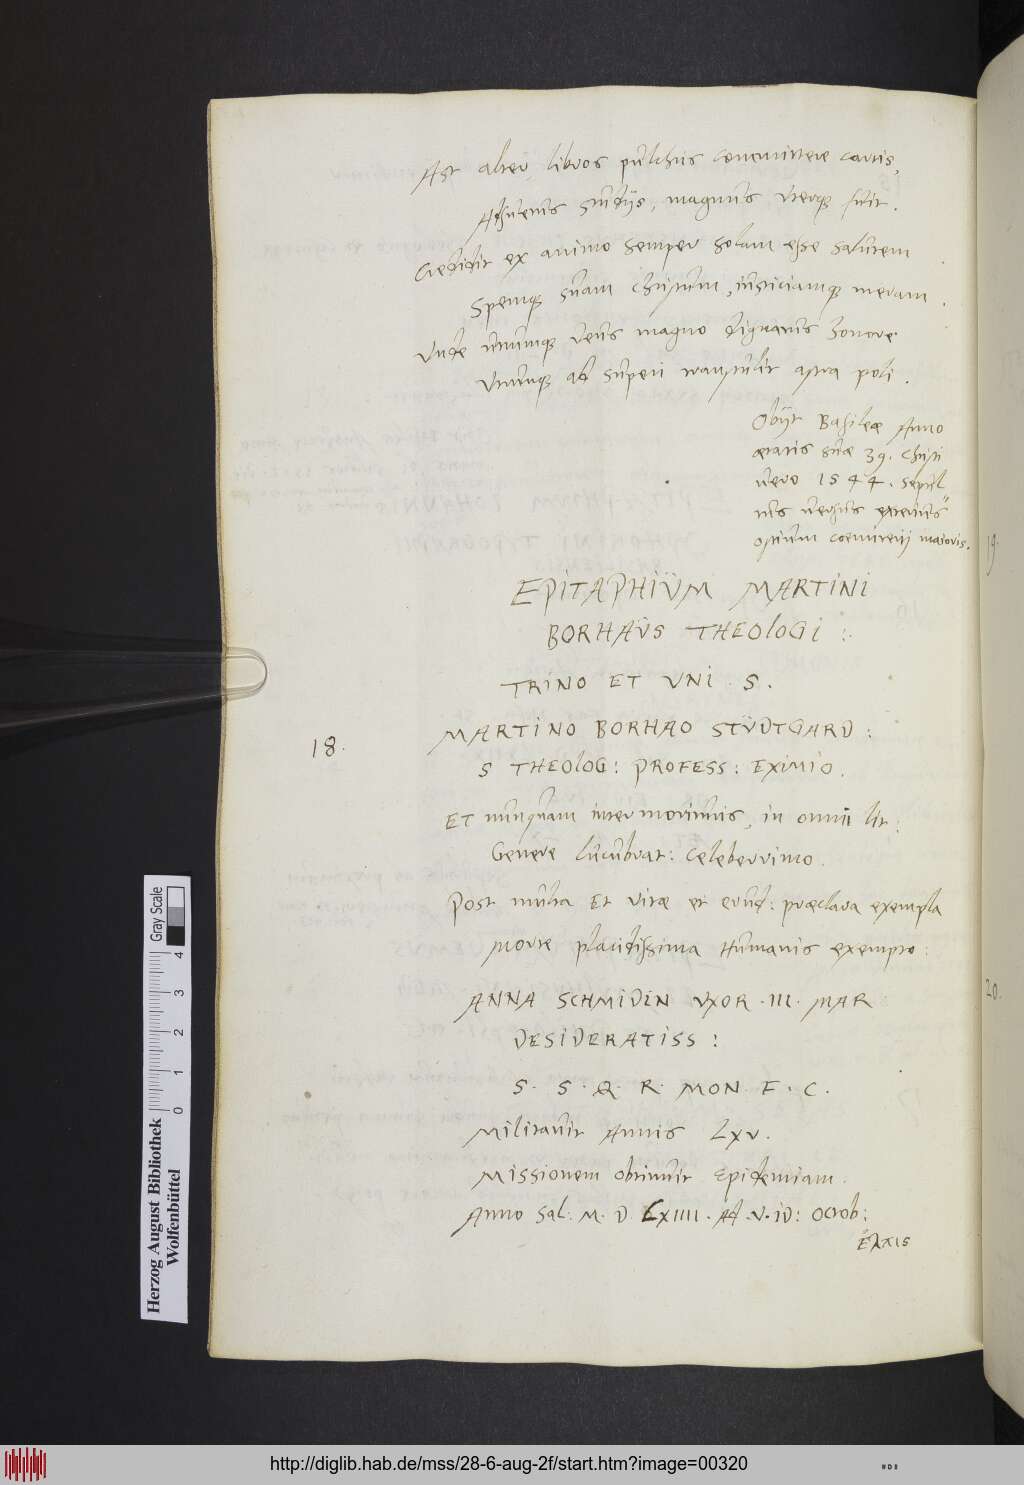 Ast alter libros pulchris committere cartis,
Assuetus studijs, magnus vterque fuit.
Credidit ex animo semper solam esse salutem
Spemq; suam Christum, iusticiamq; meram.
Vnde utrumq; Deus magno dignatus honore
Utrumq; ad superi transtulit astra poli.
Obijt Basileæ Anno
ætatis suæ 39. Christi
uero 1544. sepul
tus uersus exterius
ostium coemiterij maioris.
EPITAPHIUM MARTINI
BORHAUS THEOLOGI :
TRINO ET VNI . S.
18.
MARTINO BORHAO STUDTGARD:
S THEOLOG: PROFESS: EXIMIO.
ET nunquam intermorituris, in omni lit:
Genere lucubrat: celeberrimo.
Post multa Et vitæ et erud: præclara exempla
morte placidissima Humanis exempto:
ANNA SCHMIDIN VXOR .III. MAR
DESIDERATISS:
S. S. Q. R. MON. F. C.
Militauit Annis LXV.
Missionem obtinuit Epidemiam.
Anno Sal: M. D. LXIIII. A. V. ID: Octob:
19.
20.
Herzog August Bibliothek
Wolfenbüttel
0 1 2 3 4
Gray Scale
http://diglib.hab.de/mss/28-6-aug-2f/start.htm?image=00320